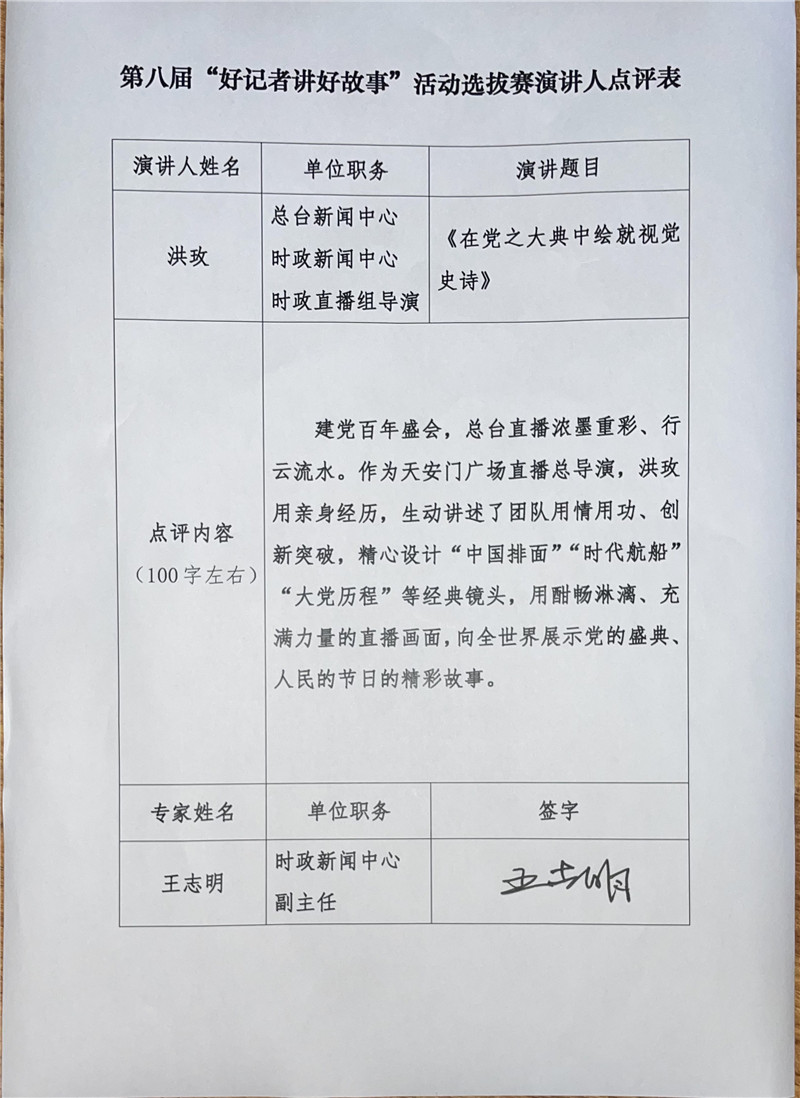 第八届“好记者讲好故事”活动选拔赛演讲人点评表
演讲人姓名 单位职务 演讲题目
洪玫
总台新闻中心
时政新闻中心
时政直播组导演
《在党之大典中绘就视觉
史诗》
点评内容
（100字左右）
建党百年盛会，总台直播浓墨重彩、行
云流水。作为天安门广场直播总导演，洪玫
用亲身经历，生动讲述了团队用情用功、创
新突破，精心设计“中国排面”“时代航船”
“大党历程”等经典镜头，用酣畅淋漓、充
满力量的直播画面，向全世界展示党的盛典、
人民的节日的精彩故事。
专家姓名 单位职务 签字
王志明
时政新闻中心
副主任
王志明